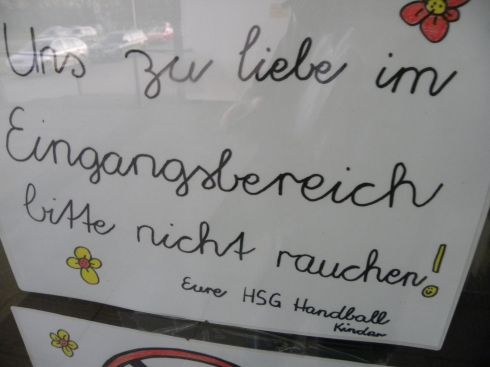 Uns zu liebe im
Eingangsbereich
bitte nicht rauchen!
Eure HSG Handball
Kinder